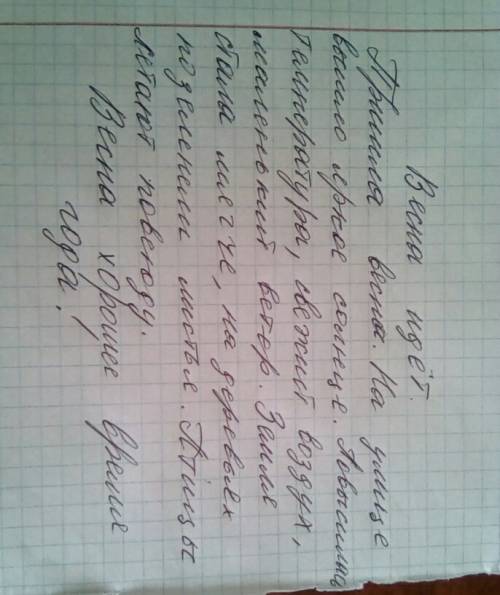 Весна идёт.
Пришла весна. На улице
вышло яркое солнце. Повысилась
температура, свежий воздух,
маленький ветер. Земля
стала мягче, на деревьях
позеленели листья. Птицы
летают повсюду.
Весна хорошее время
года!